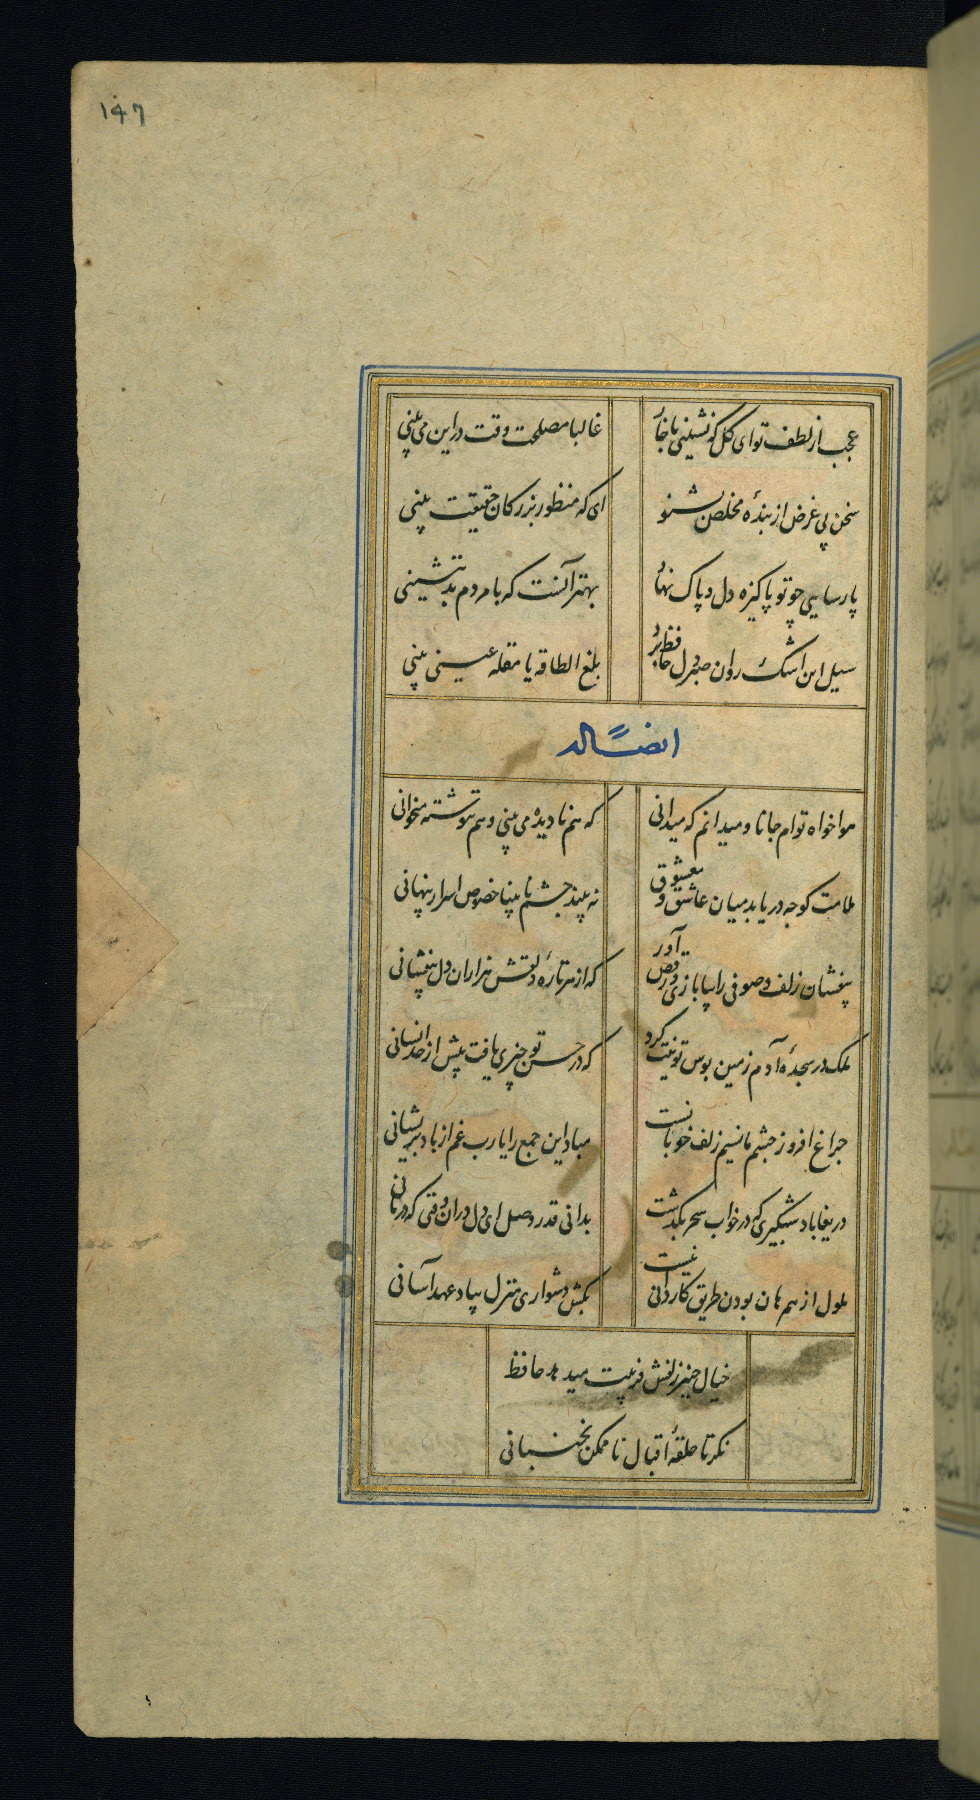 ۱۴۶
عجب از لطف تو ای کل که نشینی با خار
غالبا مصلحت وقت در این می بینی
سخن بی غرض از بندهٔ مخلص بشنو
ای که منظور بزرکان حقیقت بینی
پارسایی چو تو پاکیزه دل و پاک نهاد
بهتر آنست که با مردم بد ننشینی
سیل این اشک روان صبر دل حافظ برد
بلغ الطاقه یا مقله عینی بینی
ایضاً له
هواخواه توام جانا و میدانم که میدانی
که هم نادیده می بینی و هم ننوشته میخوانی
ملامت کو چه دریابد میان عاشق و معشوق
نه بیند چشم نابینا خصوص اسرار پنهانی
بیفشان زلف و صوفی را بپا بازی و رقص آور
که از هر تارهٔ دلقش هزاران دل بیفشانی
ملک در سجدهٔ آدم زمین بوس تو نیت کرد
که در حسن تو چیزی یافت بیش از حد انسانی
چراغ افروز چشم ما نسیم زلف خوبانست
مباد این جمع را یا رب غم از باد پریشانی
دریغا باد شبکیری که در خواب سحر بکذشت
بدانی قدر وصل ای دل در ان وقتی که درمانی
ملول از همرهان بودن طریق کاردانی نیست
بکش دشواری منزل بیاد عهد آسانی
خیال چنبر زلفش فریبت میدهد حافظ
نکر تا حلقهٔ اقبال ناممکن نجنبانی